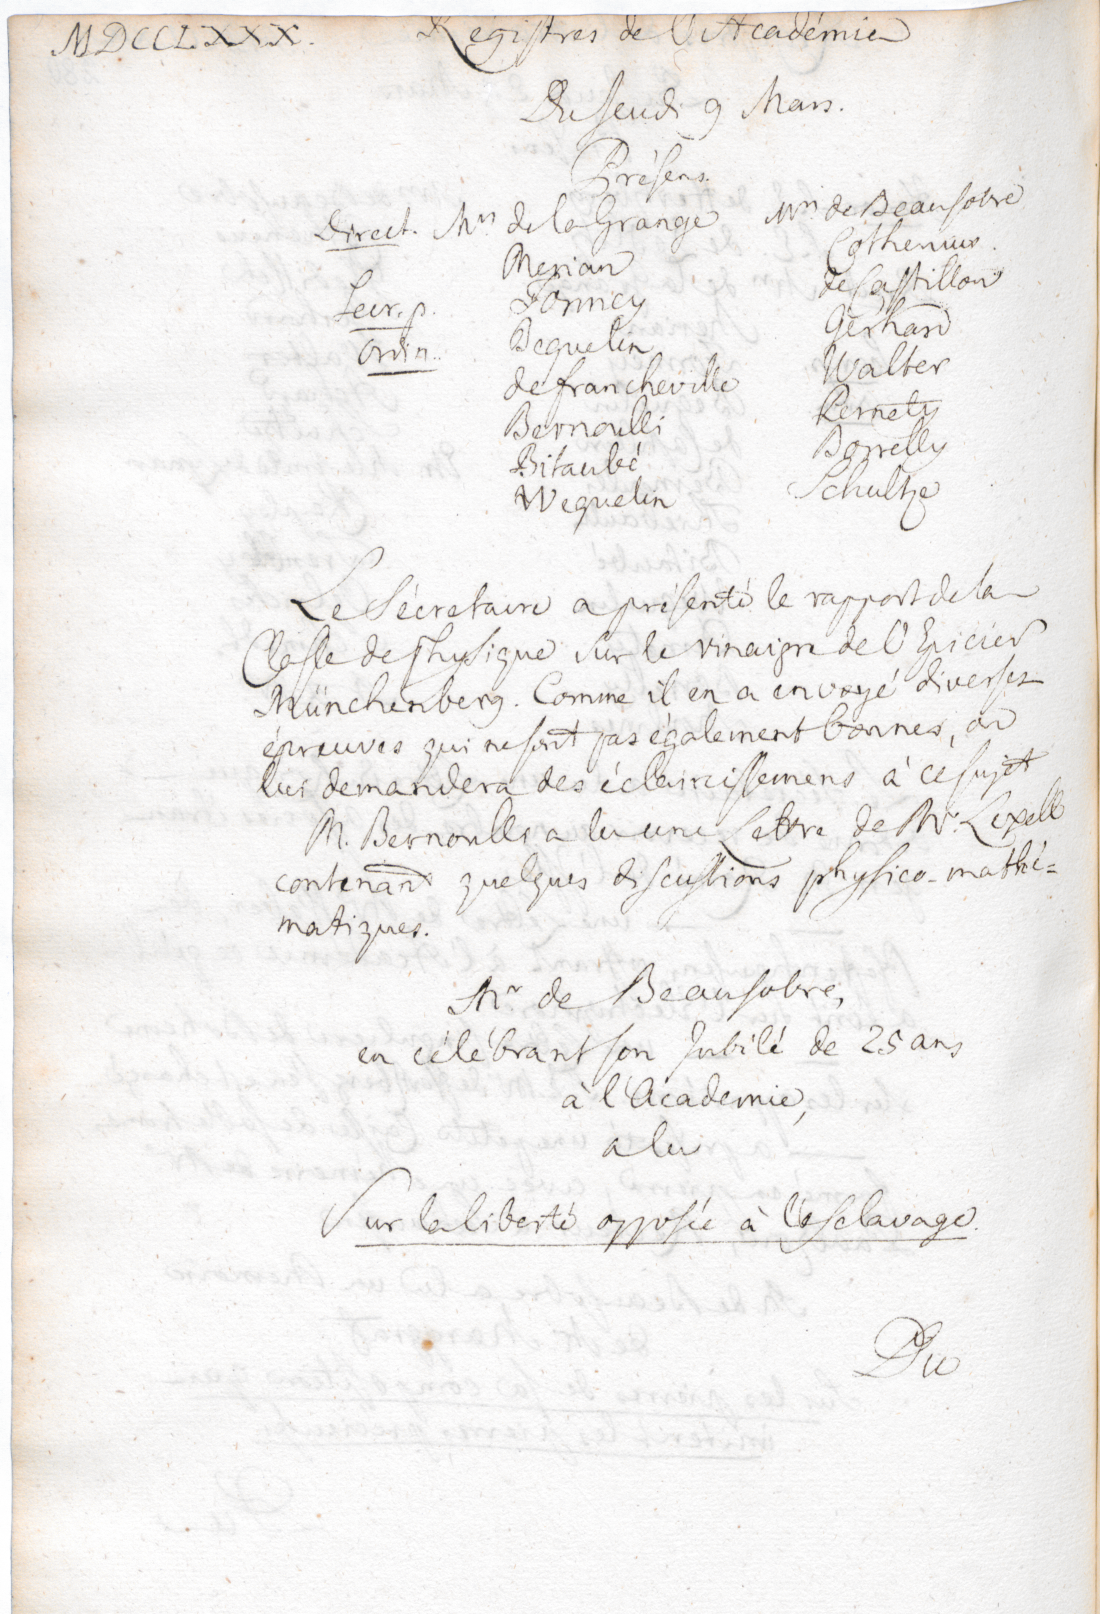 MDCCLXXX. Régistres de l'Académie
Du Jeudi 9 Mars.
Présens.
Direct. Mrs de la Grange
Merian
Secr. p. Formey
Ordin. Beguelin
de Francheville
Bernoulli
Bitaubé
Weguelin
Mrs de Beausobre
Cothenius.
de Castillon
Gerhard
Walter
Pernety
Borrelly
Schultze
Le Sécretaire a présenté le rapport de la
Classe de Physique sur le vinaigre de l'Epicier
Münchenberg. Comme il en a envoyé diverses
épreuves qui ne sont pas également bonnes, on
lui demandera des éclaircissemens à ce sujet
M. Bernoulli a lu une Lettre de Mr. Lexell
contenant quelques discussions physico-mathé=
matiques.
Mr de Beausobre,
en célébrant son Jubilé de 25 ans
à l'Académie,
a lu
Sur la liberté opposée à l'esclavage.
Du